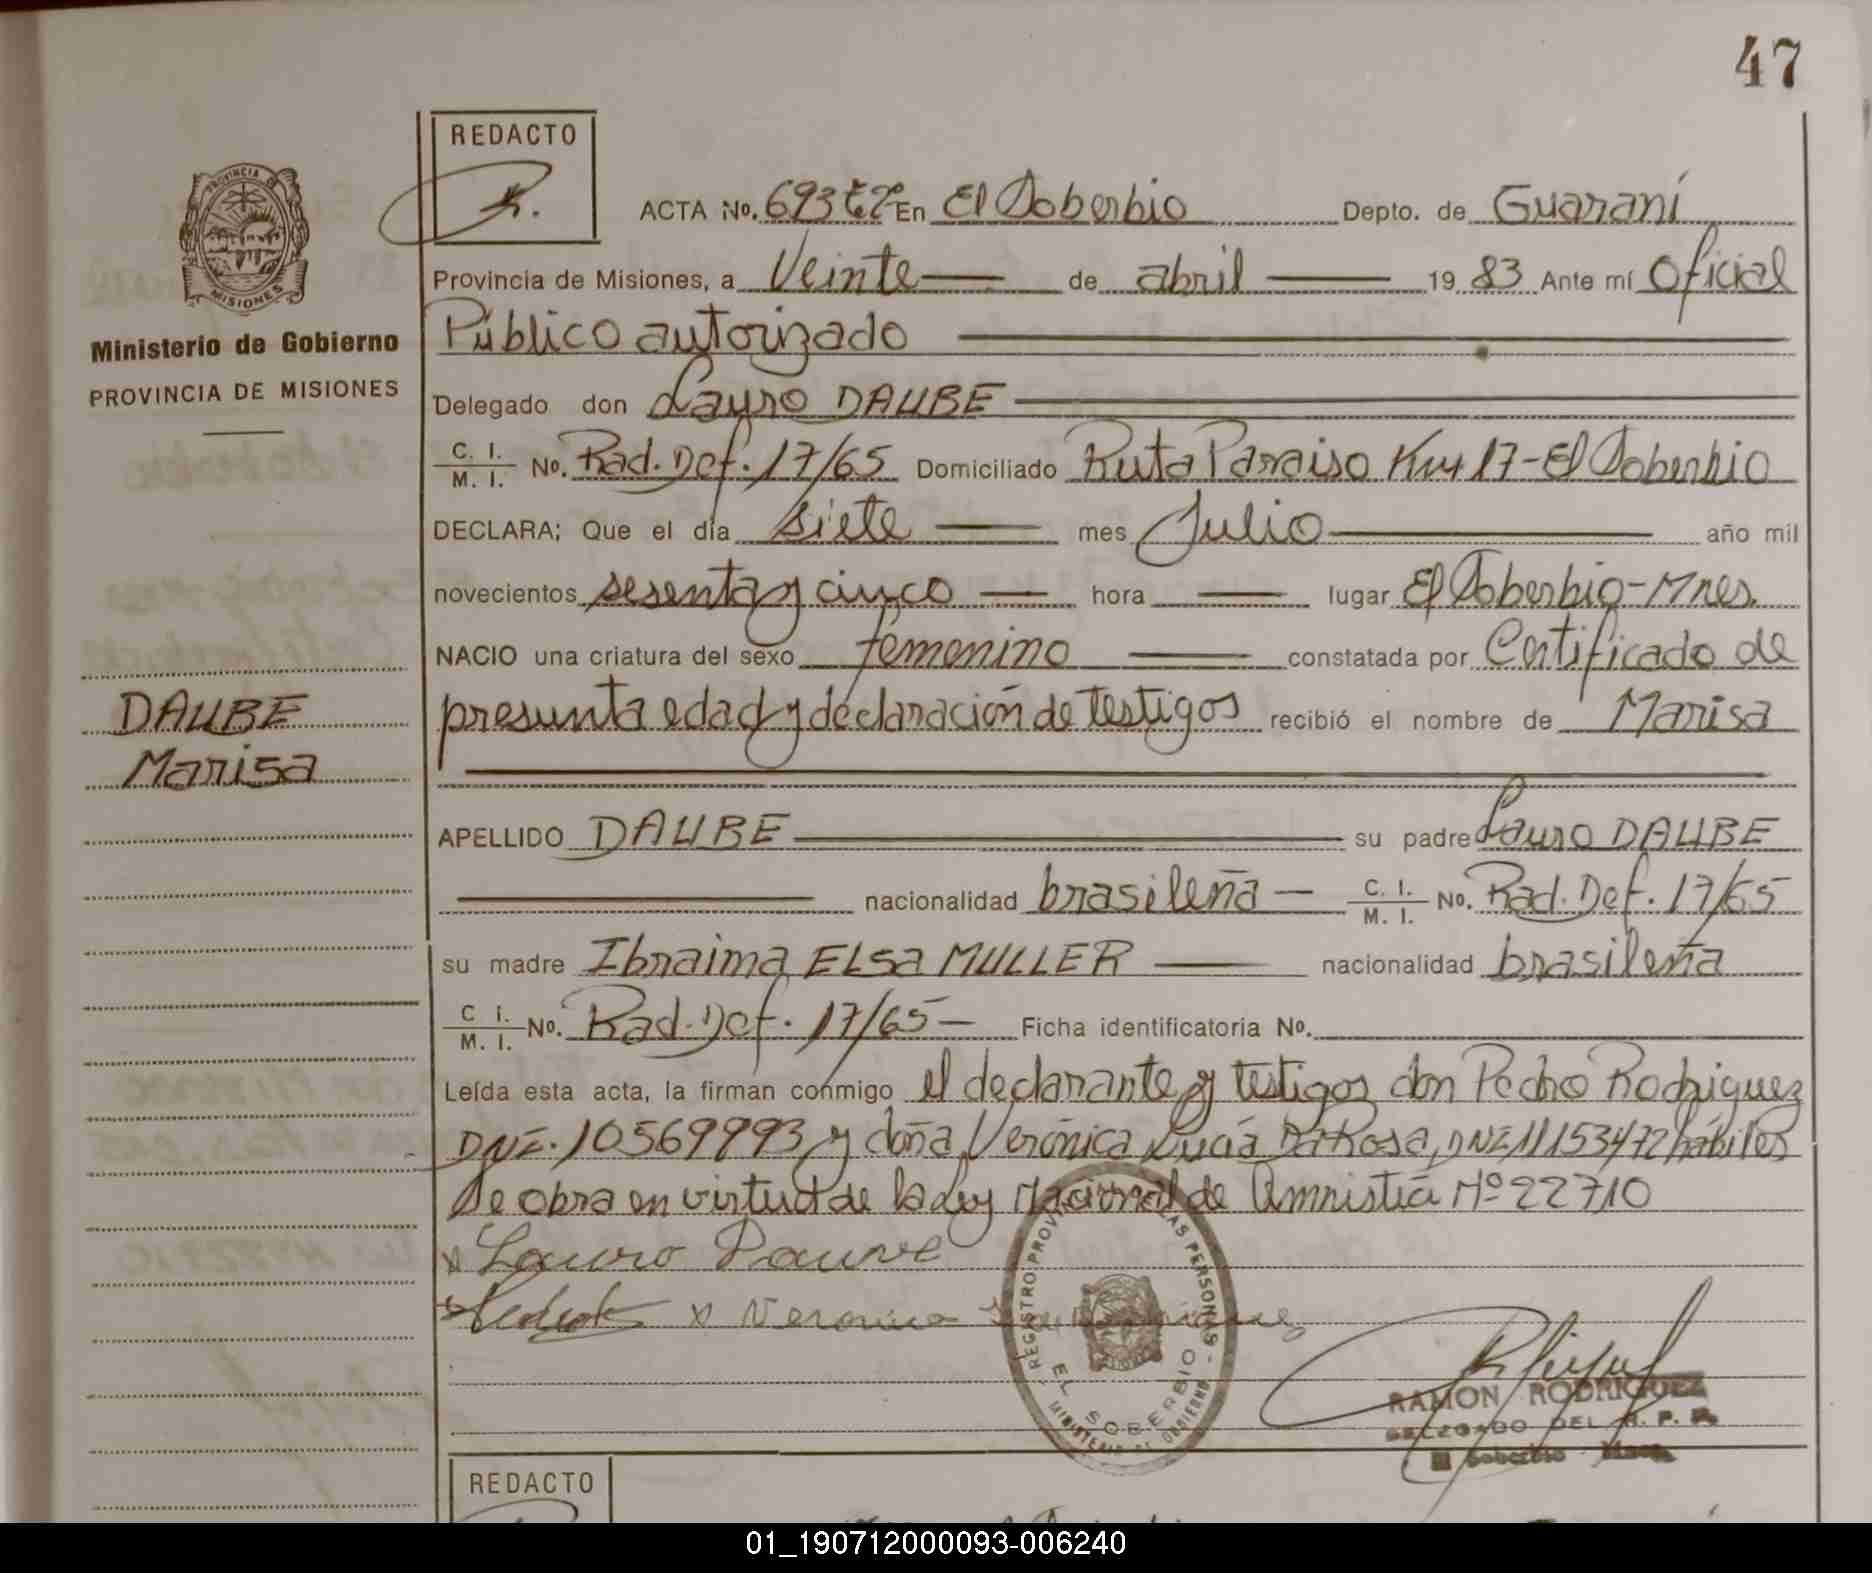 47
REDACTO
PROVINCIA DE
MISIONES
Ministerio de Gobierno
PROVINCIA DE MISIONES
ACTA No. 693 En El Soberbio Depto. de Guaraní
Provincia de Misiones, a Veinte — de abril — 19 83 Ante mí Oficial
Público autorizado —
Delegado don Lauro DAUBE —
C. I. / M. I. No. Rad. Def. 17/65 Domiciliado Ruta Paraiso Km 17 - El Soberbio
DECLARA; Que el día siete — mes Julio — año mil
novecientos sesenta y cinco — hora — lugar El Soberbio - Mnes.
NACIO una criatura del sexo femenino — constatada por Certificado de
presunta edad y declaración de testigos recibió el nombre de Marisa
DAUBE
Marisa
APELLIDO DAUBE — su padre Lauro DAUBE
— nacionalidad brasileña — C. I. / M. I. No. Rad. Def. 17/65
su madre Ibraima ELSA MULLER — nacionalidad brasileña
C. I. / M. I. No. Rad. Def. 17/65 — Ficha identificatoria No.
Leída esta acta, la firman conmigo el declarante y testigos don Pedro Rodriguez
DNI. 10569993 y doña Verónica Lucía Da Rosa, DNI 11153472 hábiles
Se obra en virtud de la Ley Nacional de Amnistía Nº 22710
x Lauro Daube
x Veronica
REGISTRO PROV LAS PERSONAS
EL SOBERBIO
MINISTERIO DE GOBIERNO
RAMON RODRIGUEZ
DELEGADO DEL R. P. P.
El Soberbio Mnes.
REDACTO
01_190712000093-006240